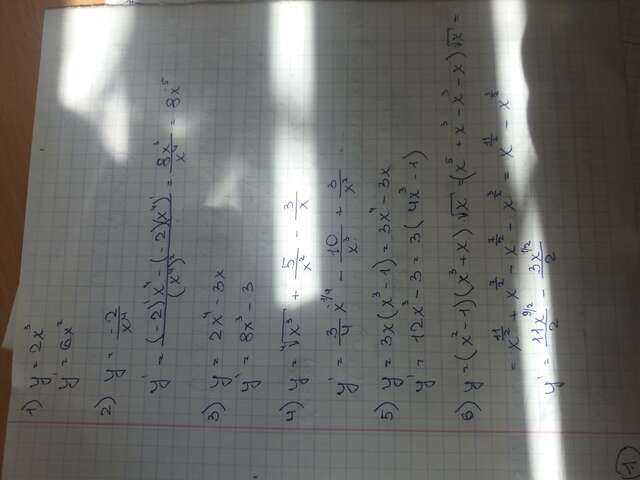 1) y = 2x³
y' = 6x²
2) y = -2/x⁴
y' = ((-2)'x⁴ - (-2)(x⁴)')/(x⁴)² = 8x³/x⁴ = 8x⁵
3) y = 2x⁴ - 3x
y' = 8x³ - 3
4) y = ⁴√x³ + 5/x² - 3/x
y' = 3/4 x^(-1/4) - 10/x³ + 3/x²
5) y = 3x(x³ - 1) = 3x⁴ - 3x
y' = 12x³ - 3 = 3(4x³ - 1)
6) y = (x² - 1)(x³ + x)√x = (x⁵ + x³ - x³ - x)√x =
= x^(11/2) + x^(7/2) - x^(7/2) - x^(3/2) = x^(11/2) - x^(3/2)
y' = 11x^(9/2)/2 - 3x^(1/2)/2
1